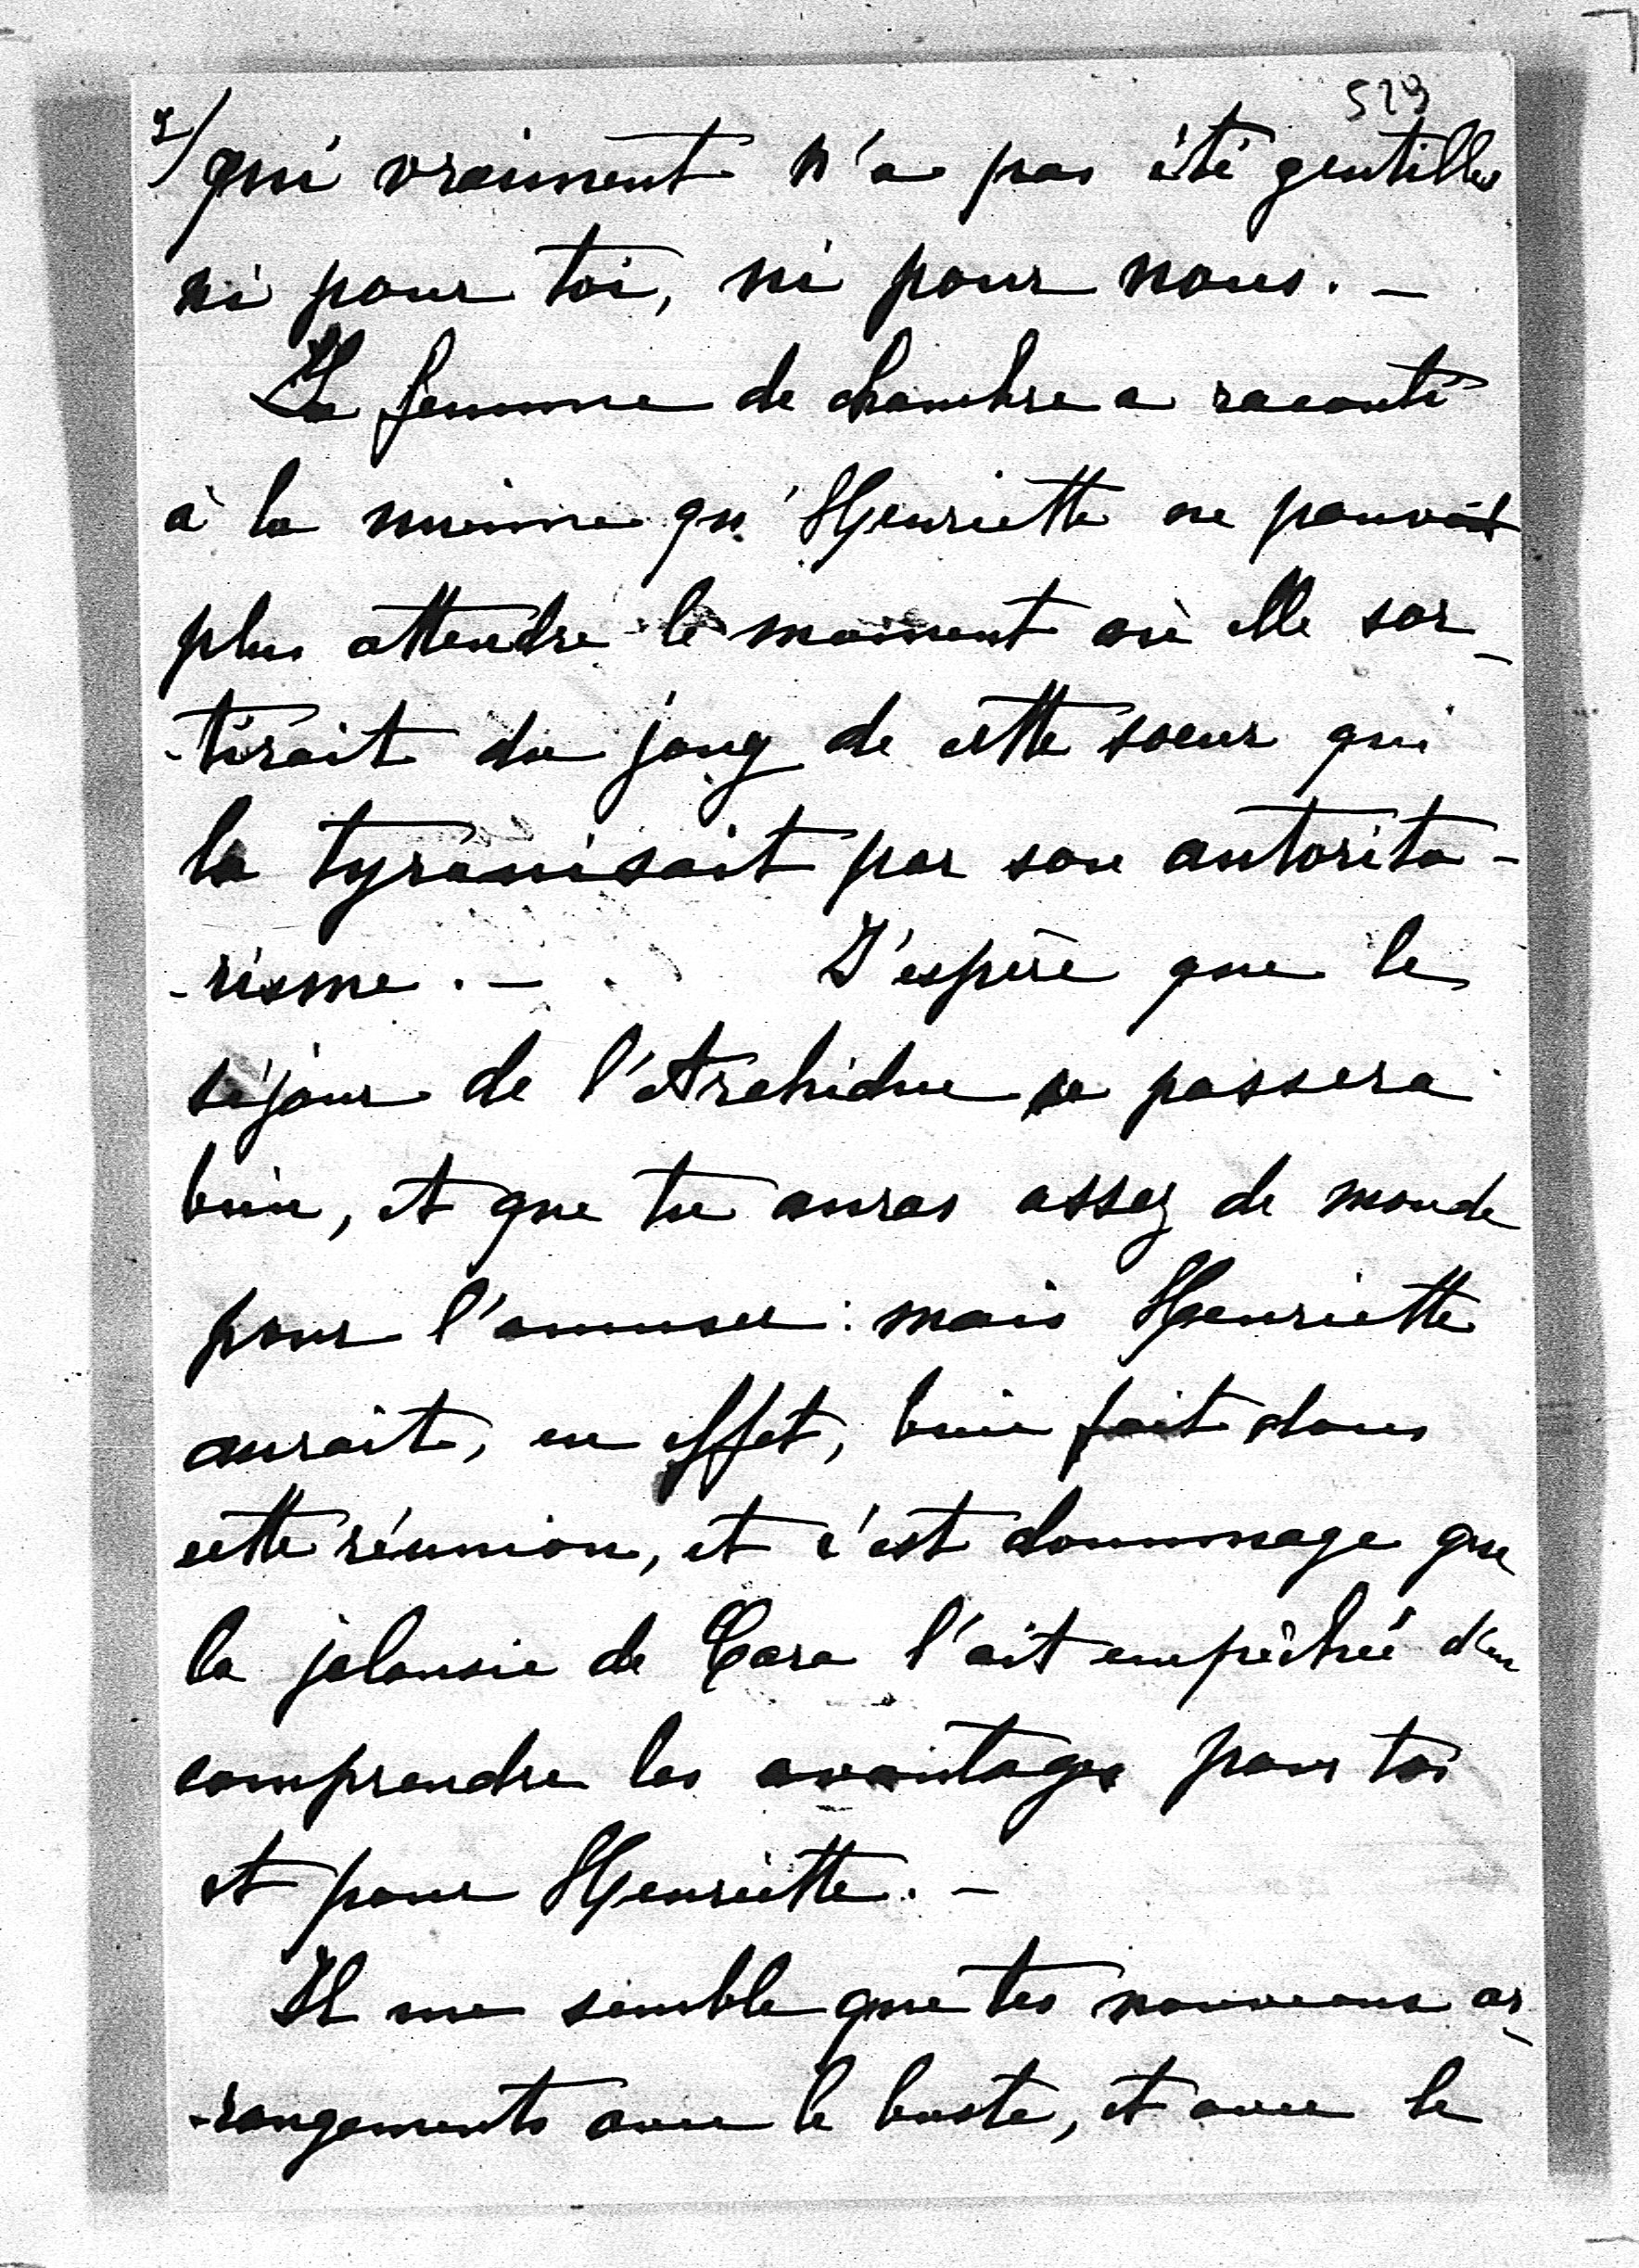 529
2/ qui vraiment n'a pas été gentille
ni pour toi, ni pour nous. -
La femme de chambre a raconté
à la mienne qu'Henriette ne pouvait
plus attendre le moment où elle sor-
-tirait du joug de cette soeur qui
la tyranisait par son autorita-
-risme. - J'espère que le
séjour de l'Archiduc se passera
bien, et que tu auras assez de monde
pour l'amuser : mais Henriette
aurait, en effet, bien fait dans
cette réunion, et c'est dommage que
la jalousie de Cara l'ait empêchée d'en
comprendre les avantages pour toi
et pour Henriette. -
Il me semble que tes nouveaux ar-
-rangements avec le buste, et avec le